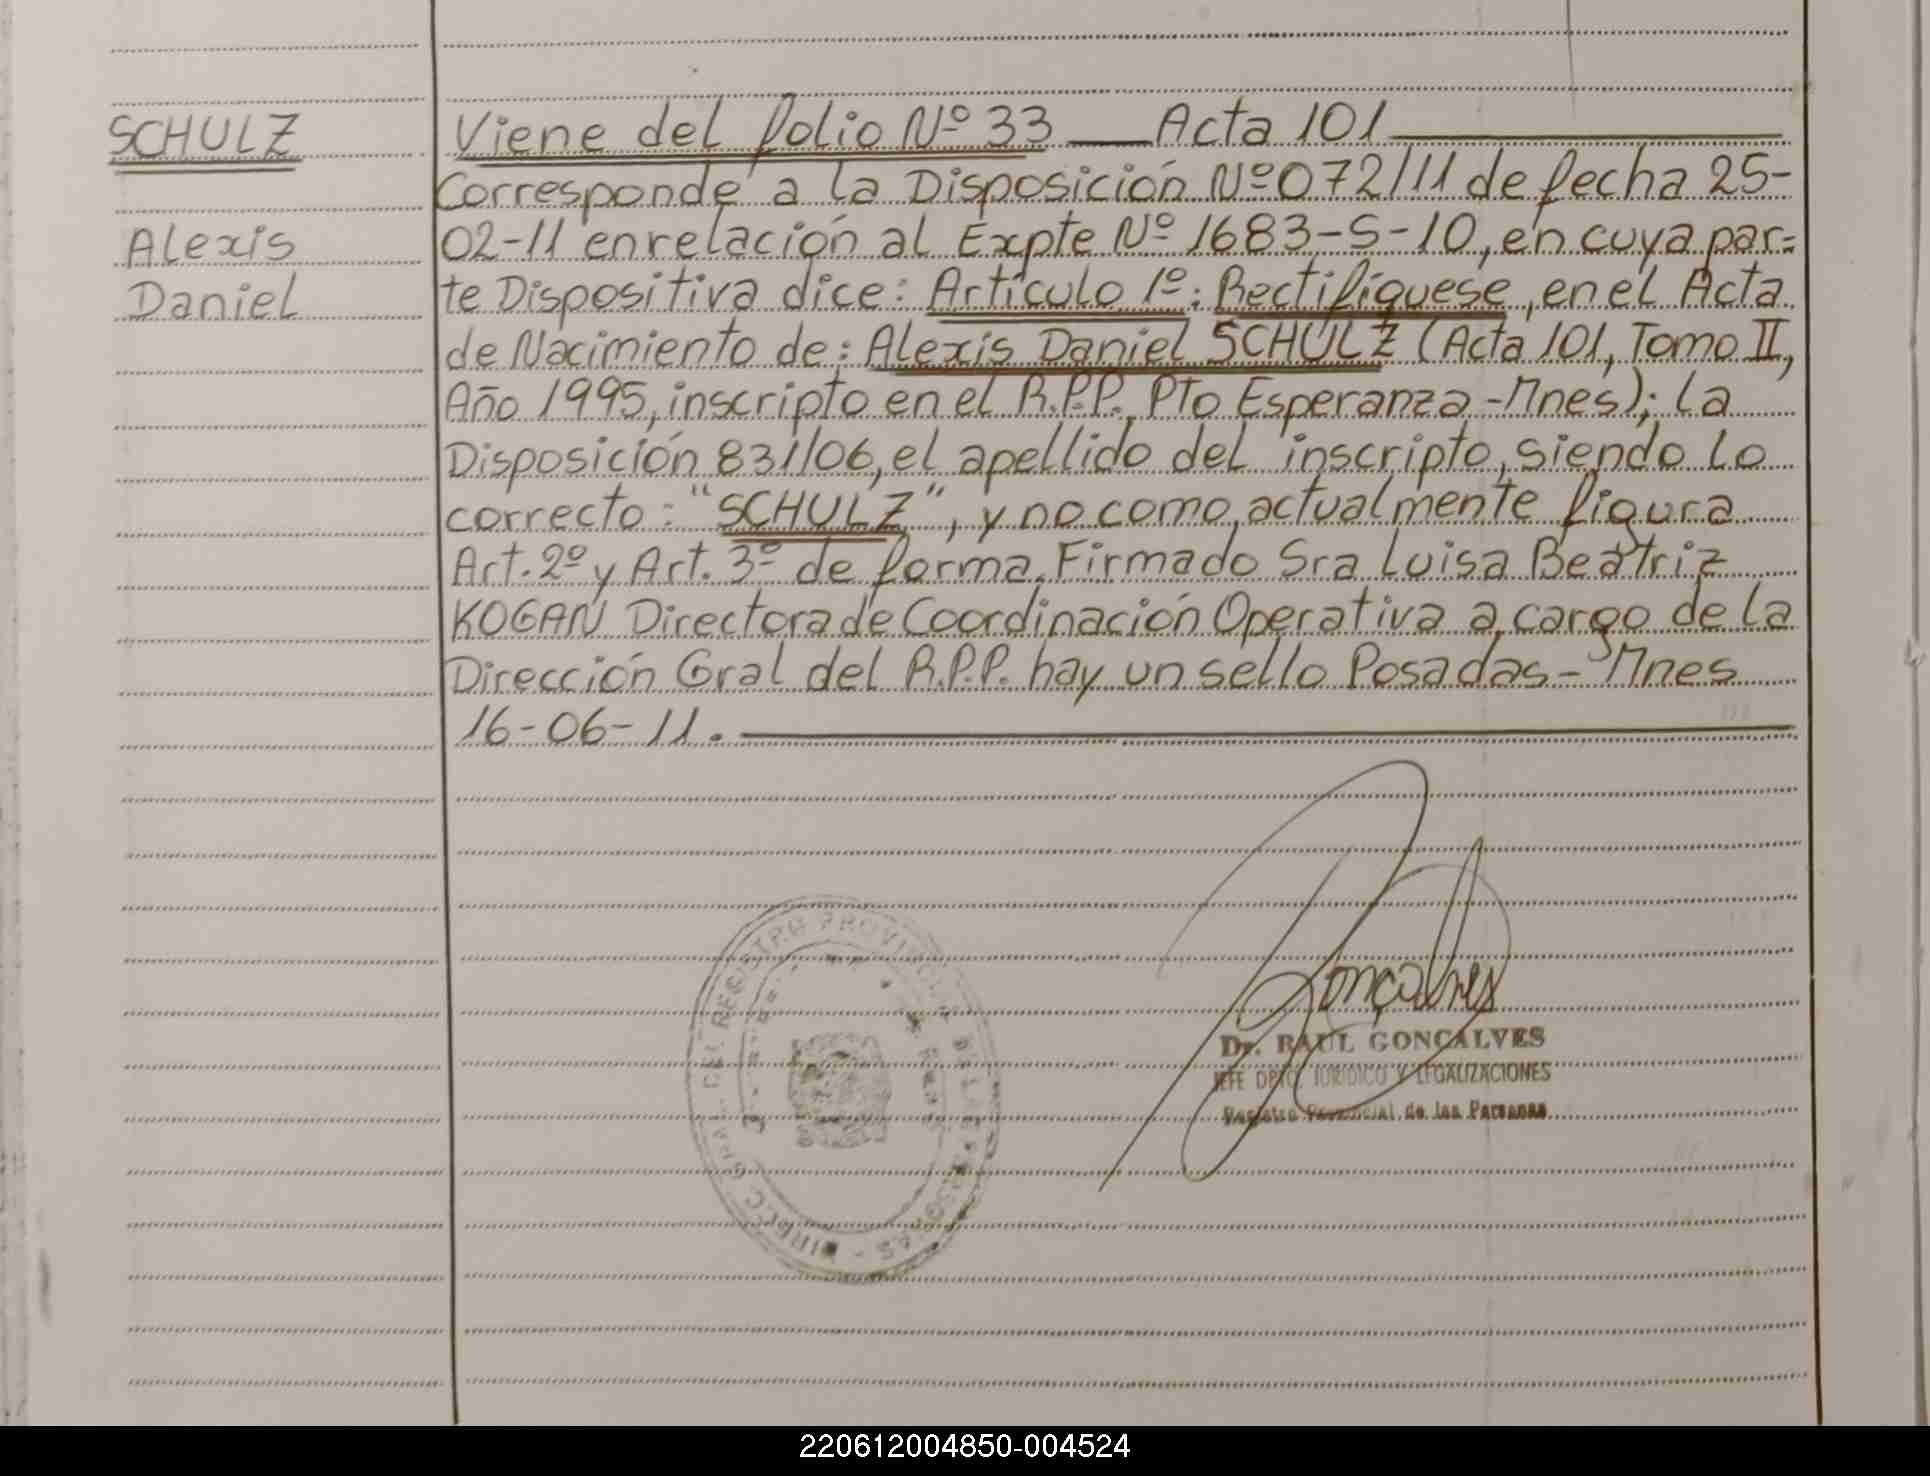 SCHULZ
Alexis
Daniel
Viene del folio Nº 33 — Acta 101
Corresponde a la Disposición Nº 072/11 de fecha 25-
02-11 en relación al Expte Nº 1683-S-10, en cuya par=
te Dispositiva dice: Artículo 1º: Rectifíquese, en el Acta
de Nacimiento de: Alexis Daniel SCHULZ (Acta 101, Tomo II,
Año 1995, inscripto en el R.P.P. Pto Esperanza - Mnes); la
Disposición 831/06, el apellido del inscripto, siendo lo
correcto: "SCHULZ", y no como, actualmente figura
Art. 2º y Art. 3º de forma. Firmado Sra Luisa Beatriz
KOGAN Directora de Coordinación Operativa a cargo de la
Dirección Gral del R.P.P. hay un sello Posadas - Mnes
16-06-11.
Gonçalves
Dr. RAUL GONCALVES
JEFE DPTO. JURIDICO Y LEGALIZACIONES
Registro Provincial de las Personas
DIRECC GRAL. DEL REGISTRO PROVINCIAL DE LAS PERSONAS -
220612004850-004524